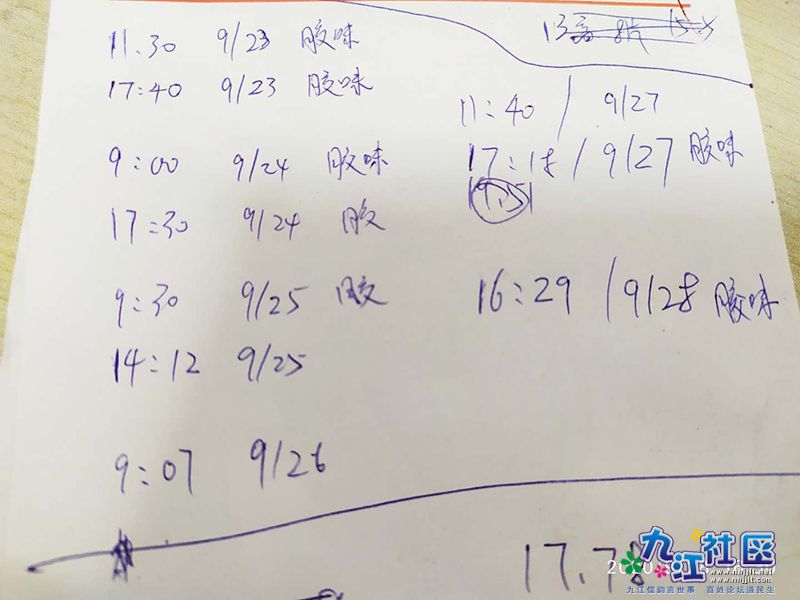 11.30 9/23 胶味
17:40 9/23 胶味
9:00 9/24 胶味
17:30 9/24 胶
9:30 9/25 胶
14:12 9/25
9:07 9/26
13
11:40 / 9/27
17:18 / 9/27 胶味
19.51
16:29 / 9/28 胶味
17.78
九江社区
www.nnjjlt.net
九江儒韵言世事 百姓论坛道民生